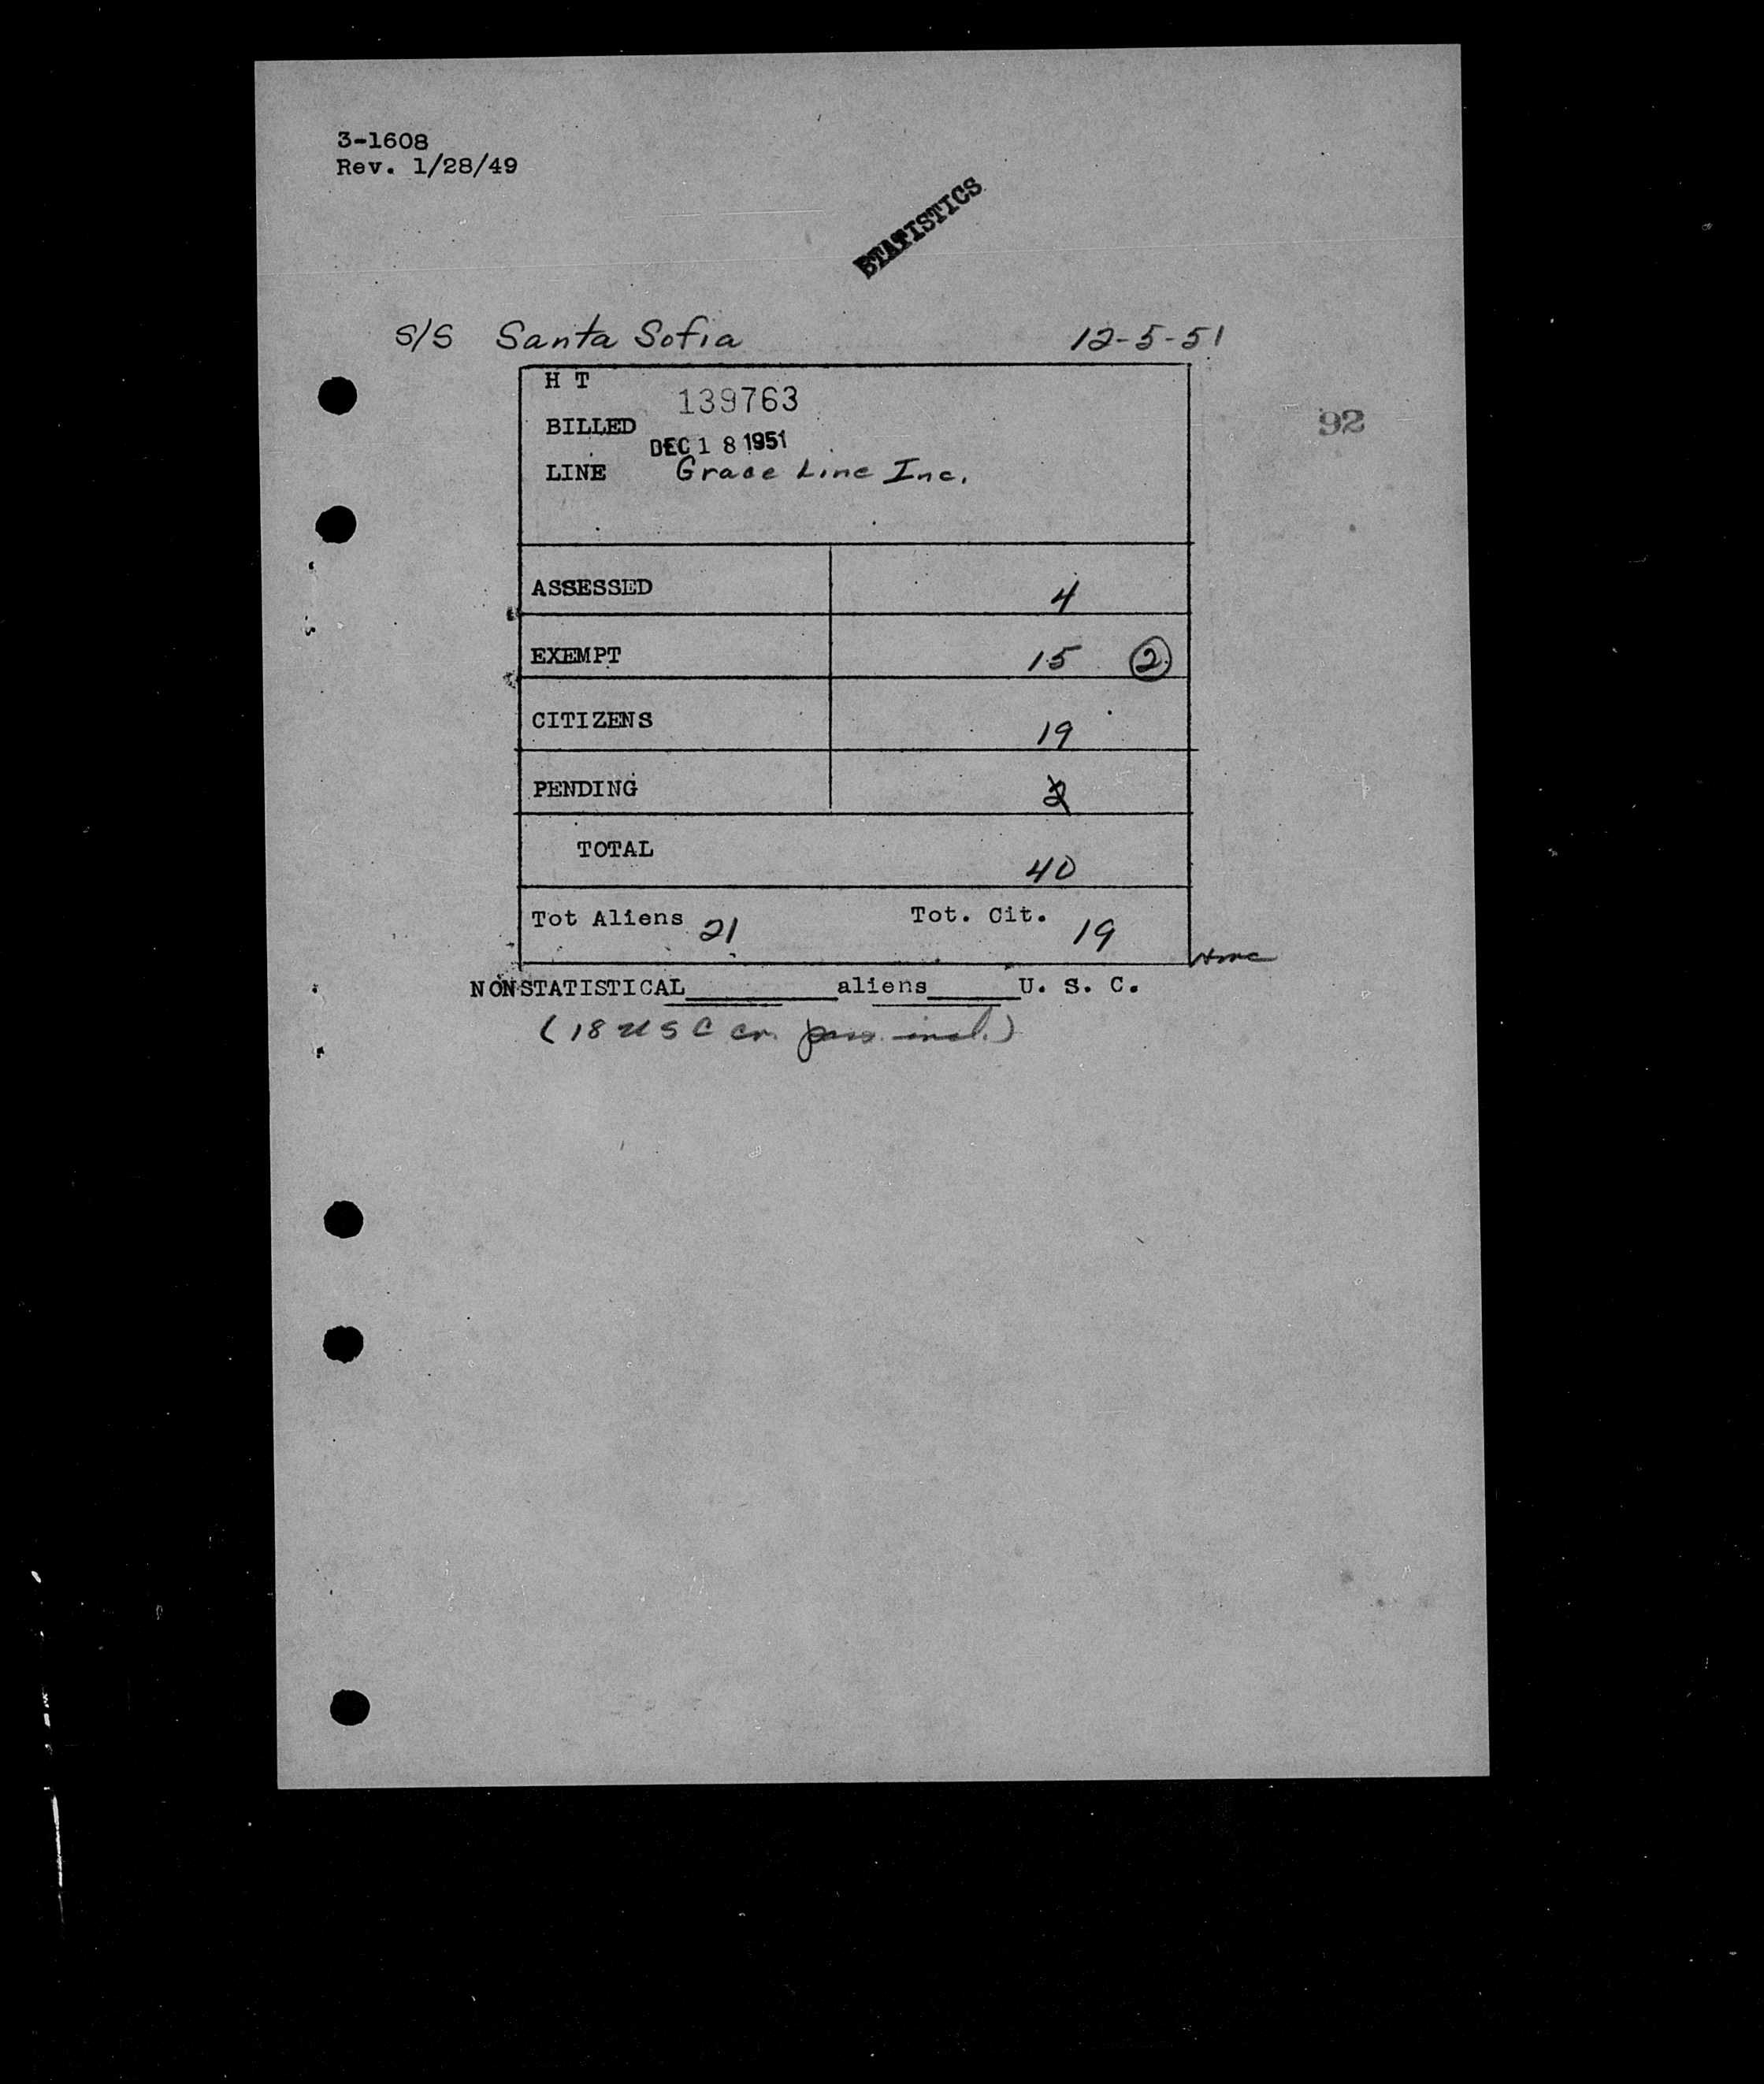 3-1608
Rev. 1/28/49
STATISTICS
S/S Santa Sofia 12-5-51
H T
139763
92
BILLED
DEC 18 1951
LINE Grace Line Inc.
ASSESSED 4
EXEMPT 15 2
CITIZENS 19
PENDING 2
TOTAL 40
Tot Aliens 21 Tot. Cit. 19
NONSTATISTICAL________aliens_____U. S. C.
(18 USC cr. pass. incl.)